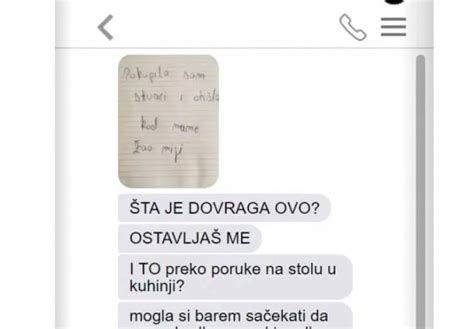 Pokupila sam
stvari i otišla
kod mame
Žao mi je
ŠTA JE DOVRAGA OVO?
OSTAVLJAŠ ME
I TO preko poruke na stolu u
kuhinji?
mogla si barem sačekati da